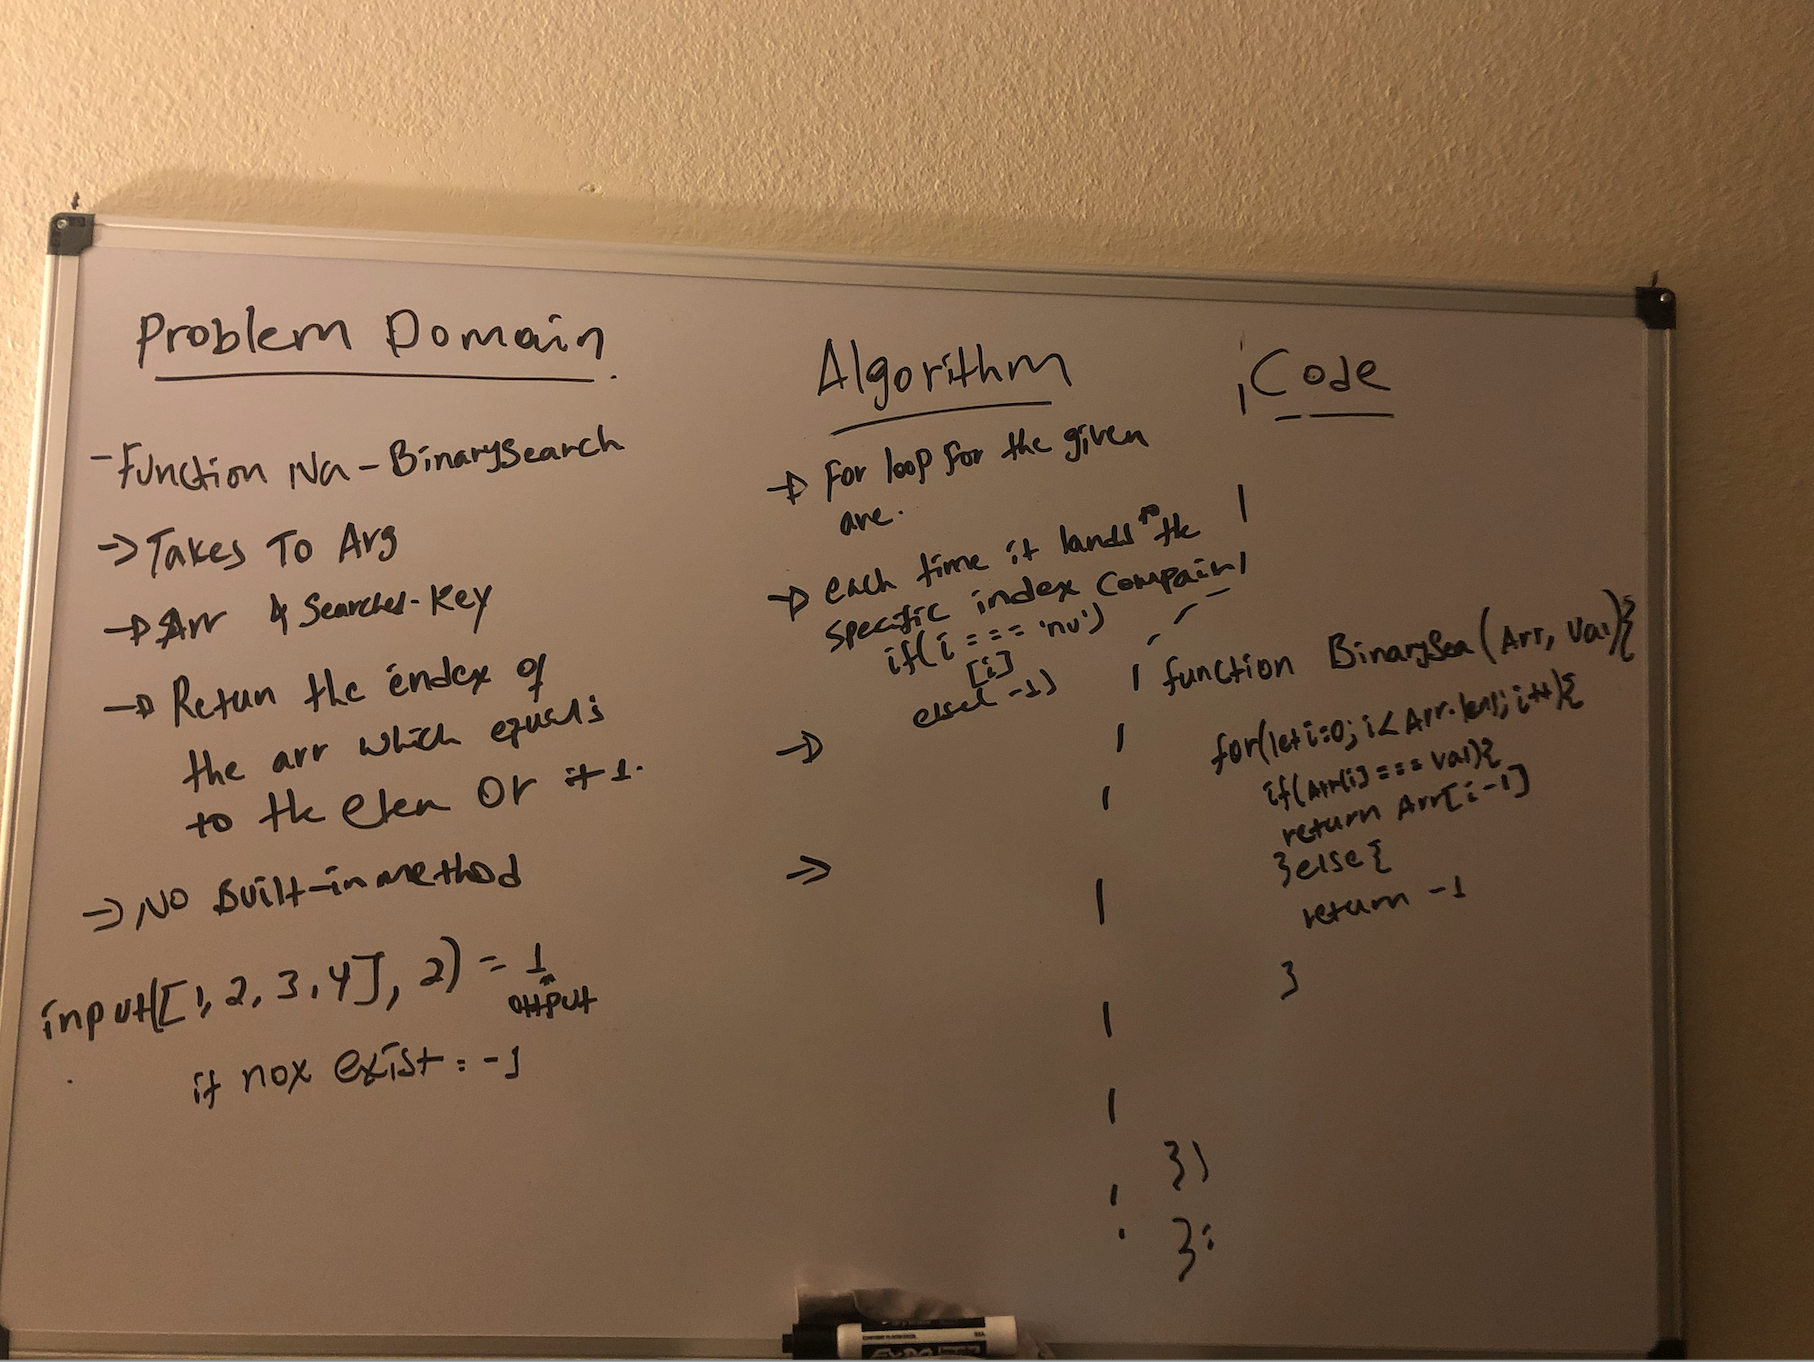 Problem Domain.
- Function Na - BinarySearch
-> Takes To Arg
-> Arr & Searched-Key
-> Retun the endex of
the arr which equals
to the elem Or it-1.
=> No Built-in method
input([1, 2, 3, 4], 2) = 1
output
if nox exist: -1
Algorithm
-> For loop for the given
are.
-> each time it lands to the
specific index Compair
if(i === 'nu')
[i]
else( -1)
->
=>
Code
function BinarySea (Arr, Val){
for(let i=0; i< Arr.len; i++){
if(Arr[i] === val){
return Arr[i-1]
}else{
return -1
}
})
};
EXPO